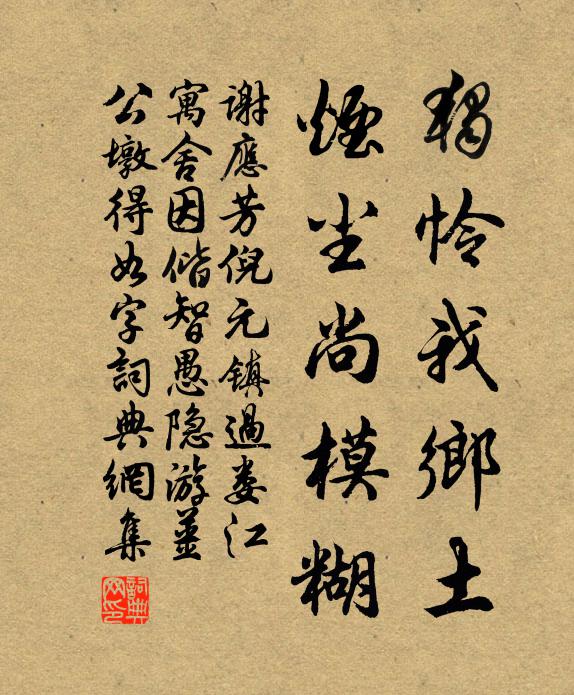 獨怜我鄉土
煙尘尚模糊
謝應芳倪元鎮過娄江
寓舍因偕智愚隐游姜
公墩得如字詞典網集
詞典网印